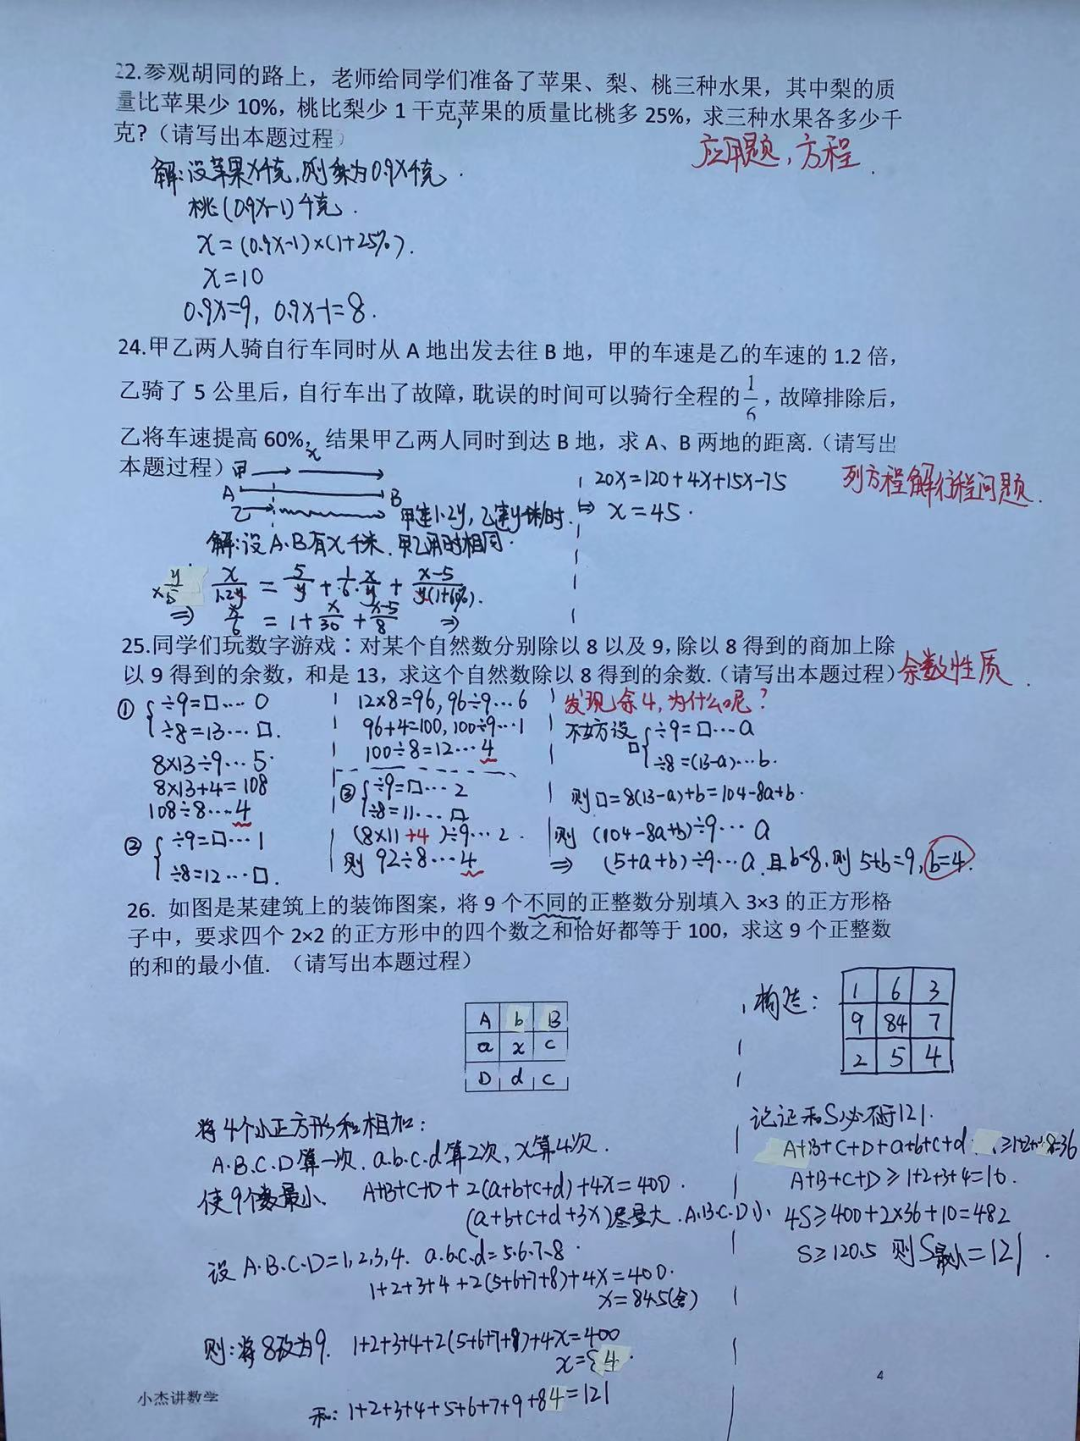 22.参观胡同的路上，老师给同学们准备了苹果、梨、桃三种水果，其中梨的质
量比苹果少 10%，桃比梨少 1 千克,苹果的质量比桃多 25%，求三种水果各多少千
克?（请写出本题过程）
应用题，方程.
解:设苹果x千克,则梨为0.9x千克.
桃:(0.9x-1)千克.
x=(0.9x-1)×(1+25%).
x=10
0.9x=9, 0.9x-1=8.
24.甲乙两人骑自行车同时从 A 地出发去往 B 地，甲的车速是乙的车速的 1.2 倍，
乙骑了 5 公里后，自行车出了故障，耽误的时间可以骑行全程的1/6，故障排除后，
乙将车速提高 60%，结果甲乙两人同时到达 B 地，求 A、B 两地的距离.（请写出
本题过程）
甲 x
A B
乙
甲速1.2y,乙速y千米/时.
解:设A.B有x千米.甲乙用时相同.
×y/5 x/1.2y = 5/y + 1/6·x/y + x-5/y(1+60%).
⇒ x/6 = 1+x/30+x-5/8 ⇒
20x=120+4x+15x-75
⇒ x=45.
列方程解行程问题.
25.同学们玩数字游戏：对某个自然数分别除以 8 以及 9,除以 8 得到的商加上除
以 9 得到的余数，和是 13，求这个自然数除以 8 得到的余数.（请写出本题过程）
余数性质.
① ÷9=□…0
÷8=13…□.
8×13÷9…5.
8×13+4=108
108÷8…4
② ÷9=□…1
÷8=12…□.
12×8=96, 96÷9…6
96+4=100, 100÷9…1
100÷8=12…4
③ ÷9=□…2
÷8=11…□
(8×11+4)÷9…2.
则 92÷8…4
发现余4,为什么呢?
不妨设□ ÷9=□…a
÷8=(13-a)…b.
则□=8(13-a)+b=104-8a+b.
则 (104-8a+b)÷9…a
⇒ (5+a+b)÷9…a.且b<8,则5+b=9, b=4.
26. 如图是某建筑上的装饰图案，将 9 个不同的正整数分别填入 3×3 的正方形格
子中，要求四个 2×2 的正方形中的四个数之和恰好都等于 100，求这 9 个正整数
的和的最小值. （请写出本题过程）
A b B
a x c
D d C
将4个小正方形和相加:
A.B.C.D算一次.a.b.c.d算2次,x算4次.
使9个数最小. A+B+C+D+2(a+b+c+d)+4x=400.
(a+b+c+d+3x)尽量大.A.B.C.D小
设A.B.C.D=1,2,3,4. a.b.c.d=5.6.7.8.
1+2+3+4+2(5+6+7+8)+4x=400.
x=84.5(舍)
则:将8改为9. 1+2+3+4+2(5+6+7+9)+4x=400
x=84.
和: 1+2+3+4+5+6+7+9+84=121
构造:
1 6 3
9 84 7
2 5 4
论证和S必不小于121.
A+B+C+D+a+b+c+d ≥1+2+…+8=36
A+B+C+D≥1+2+3+4=10.
4S≥400+2×36+10=482
S≥120.5 则S最小=121.
4
小杰讲数学